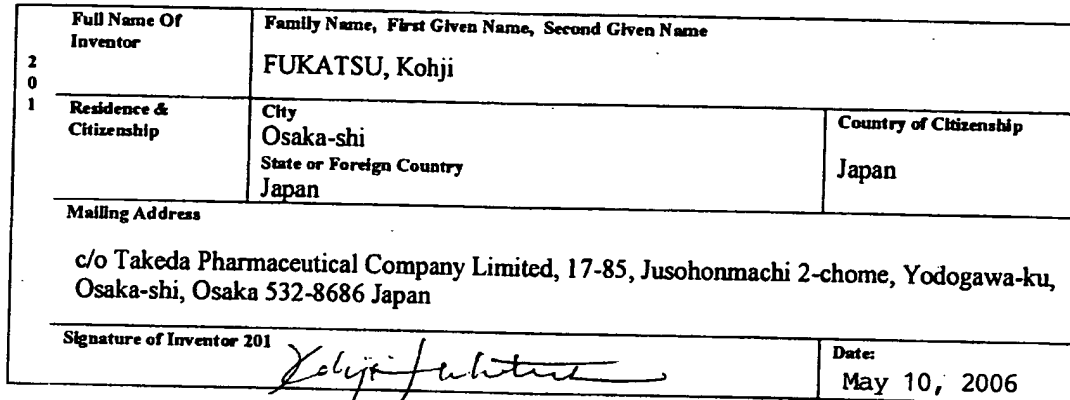 Full Name Of
Inventor
Family Name, First Given Name, Second Given Name
FUKATSU, Kohji
2
0
1
Residence &
Citizenship
City
Osaka-shi
State or Foreign Country
Japan
Country of Citizenship
Japan
Mailing Address
c/o Takeda Pharmaceutical Company Limited, 17-85, Jusohonmachi 2-chome, Yodogawa-ku,
Osaka-shi, Osaka 532-8686 Japan
Signature of Inventor 201
Kohji Fukatsu
Date:
May 10, 2006